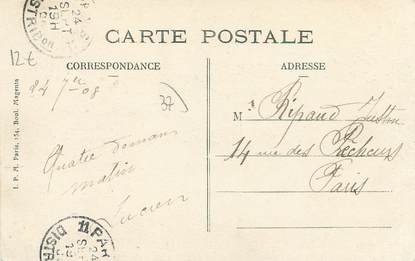 CARTE POSTALE
CORRESPONDANCE
ADRESSE
12 €
24 7bre 08
37
Quatre
matin
Lucien
M. Ripaud Justin
14 rue des Pêcheurs
Paris
I. P. M. Paris, 154, Boul. Magenta
24
SEPT
19H
DISTRIBON
11 PAR
24
DISTR